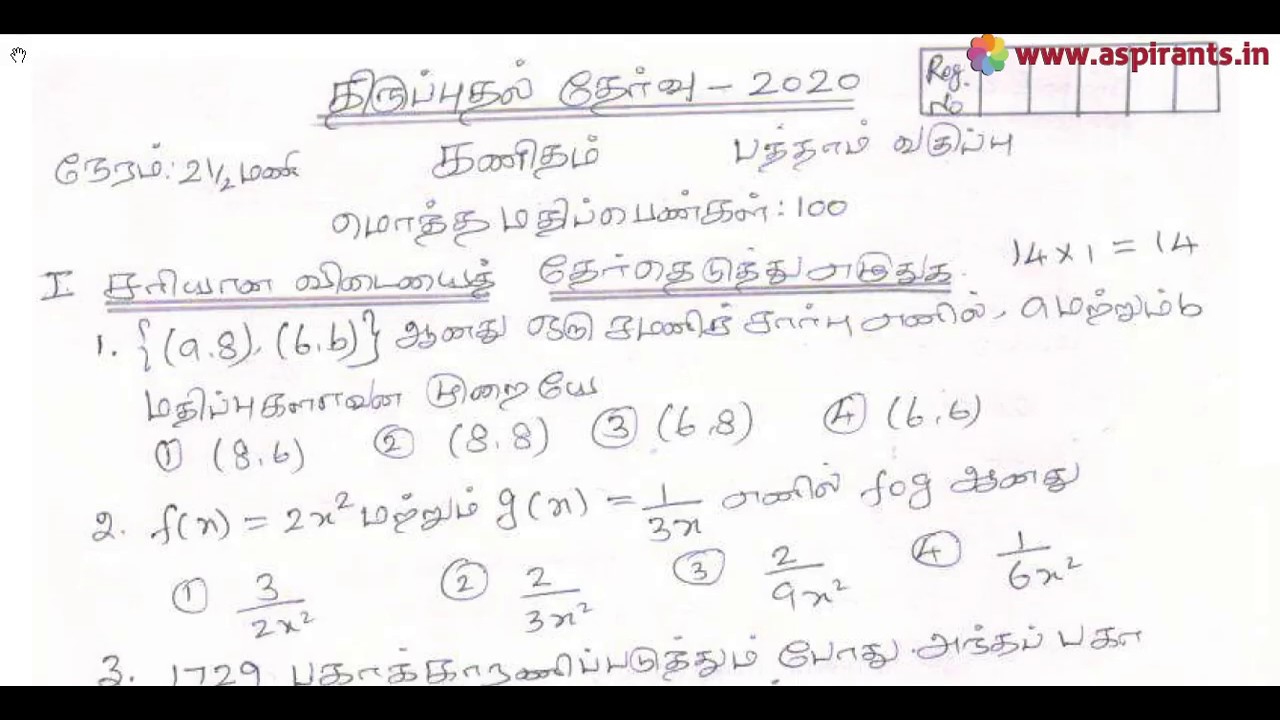 www.aspirants.in
Reg. No
திருப்புதல் தேர்வு - 2020
நேரம்: 2 1/2 மணி கணிதம் பத்தாம் வகுப்பு
மொத்த மதிப்பெண்கள்: 100
I சரியான விடையைத் தேர்ந்தெடுத்து எழுதுக. 14 x 1 = 14
1. {(a,8), (6,b)} ஆனது ஒரு சமனிச் சார்பு எனில், a மற்றும் b
மதிப்புகளாவன முறையே
① (8,6) ② (8,8) ③ (6,8) ④ (6,6)
2. f(x) = 2x² மற்றும் g(x) = 1/3x எனில் fog ஆனது
① 3/2x² ② 2/3x² ③ 2/9x² ④ 1/6x²
3. 1729 பகாக்காரணிப்படுத்தும் போது, அந்தப் பகா